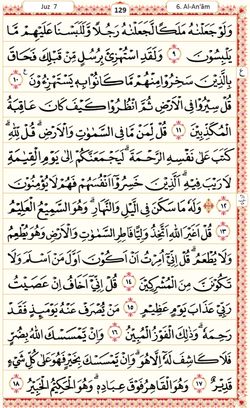 Juz 7
129
6. Al-An'âm
وَلَوْ جَعَلْنٰهُ مَلَكًا لَّجَعَلْنٰهُ رَجُلًا وَّلَلَبَسْنَا عَلَيْهِمْ مَّا
يَلْبِسُوْنَ ۹ وَلَقَدِ اسْتُهْزِئَ بِرُسُلٍ مِّنْ قَبْلِكَ فَحَاقَ
بِالَّذِيْنَ سَخِرُوْا مِنْهُمْ مَّا كَانُوْا بِهٖ يَسْتَهْزِءُوْنَ ۱۰
قُلْ سِيْرُوْا فِى الْاَرْضِ ثُمَّ انْظُرُوْا كَيْفَ كَانَ عَاقِبَةُ
الْمُكَذِّبِيْنَ ۱۱ قُلْ لِّمَنْ مَّا فِى السَّمٰوٰتِ وَالْاَرْضِ ؕ قُلْ لِّلّٰهِ ؕ
كَتَبَ عَلٰى نَفْسِهِ الرَّحْمَةَ ؕ لَيَجْمَعَنَّكُمْ اِلٰى يَوْمِ الْقِيٰمَةِ
لَا رَيْبَ فِيْهِ ؕ اَلَّذِيْنَ خَسِرُوْٓا اَنْفُسَهُمْ فَهُمْ لَا يُؤْمِنُوْنَ
۱۲ وَلَهٗ مَا سَكَنَ فِى الَّيْلِ وَالنَّهَارِ ؕ وَهُوَ السَّمِيْعُ الْعَلِيْمُ
۱۳ قُلْ اَغَيْرَ اللّٰهِ اَتَّخِذُ وَلِيًّا فَاطِرِ السَّمٰوٰتِ وَالْاَرْضِ وَهُوَ يُطْعِمُ
وَلَا يُطْعَمُ ؕ قُلْ اِنِّىْٓ اُمِرْتُ اَنْ اَكُوْنَ اَوَّلَ مَنْ اَسْلَمَ وَلَا
تَكُوْنَنَّ مِنَ الْمُشْرِكِيْنَ ۱۴ قُلْ اِنِّىْٓ اَخَافُ اِنْ عَصَيْتُ
رَبِّىْ عَذَابَ يَوْمٍ عَظِيْمٍ ۱۵ مَنْ يُّصْرَفْ عَنْهُ يَوْمَئِذٍ فَقَدْ
رَحِمَهٗ ؕ وَذٰلِكَ الْفَوْزُ الْمُبِيْنُ ۱۶ وَاِنْ يَّمْسَسْكَ اللّٰهُ بِضُرٍّ
فَلَا كَاشِفَ لَهٗٓ اِلَّا هُوَ ؕ وَاِنْ يَّمْسَسْكَ بِخَيْرٍ فَهُوَ عَلٰى كُلِّ شَىْءٍ
قَدِيْرٌ ۱۷ وَهُوَ الْقَاهِرُ فَوْقَ عِبَادِهٖ ؕ وَهُوَ الْحَكِيْمُ الْخَبِيْرُ ۱۸